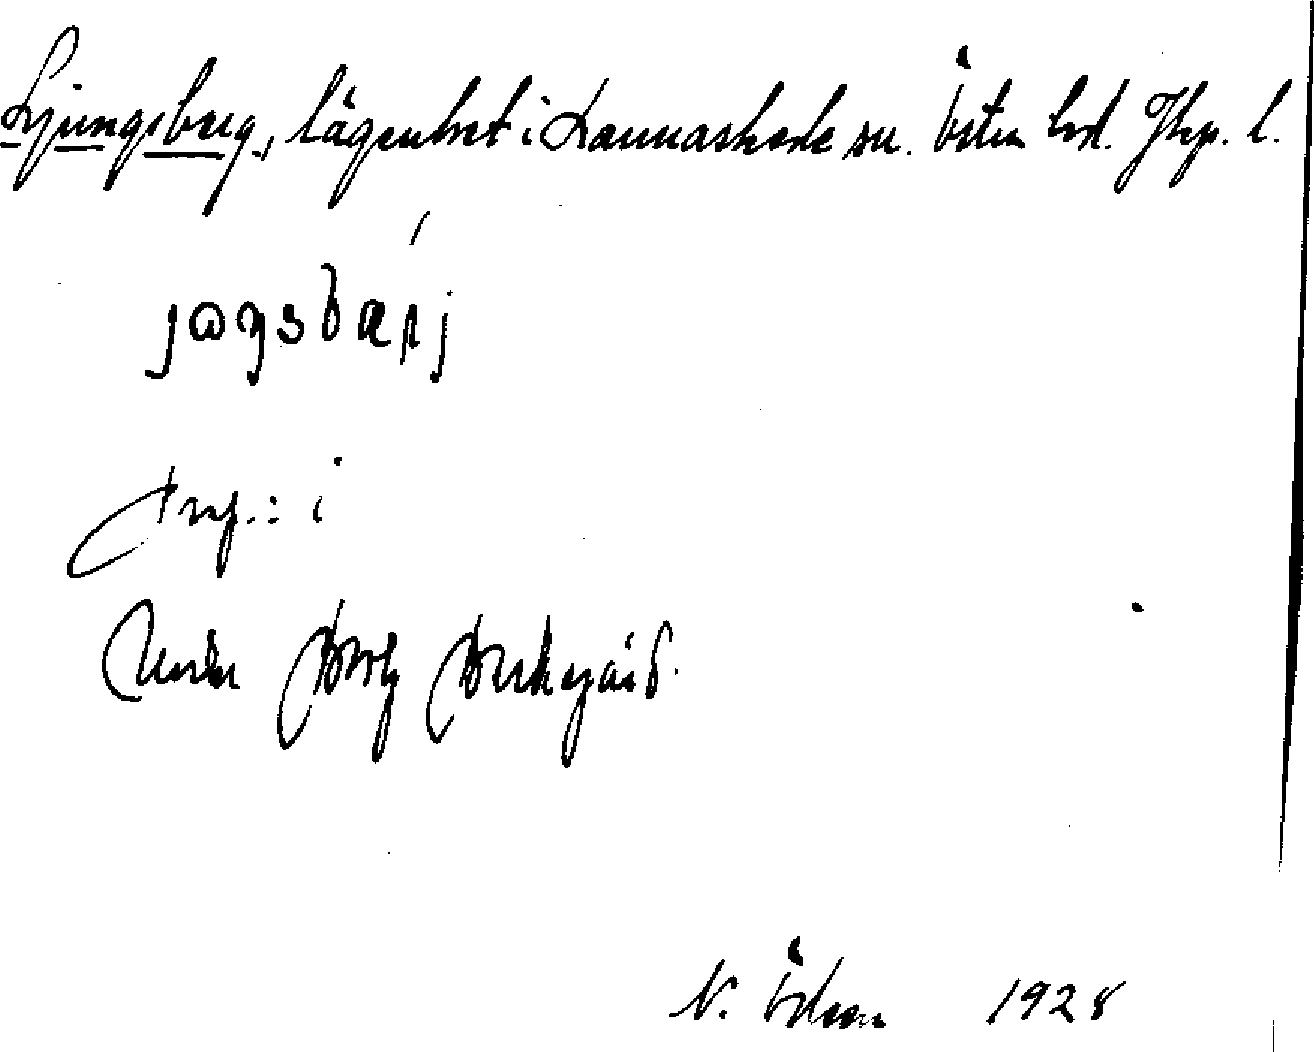 Ljungsberg, lägenhet i Lannaskede sn. Östra hd. Jkp. l.
jɷŋsbærj
Prep.: i
Under Berg Berkegård.
N. Ödeen 1928